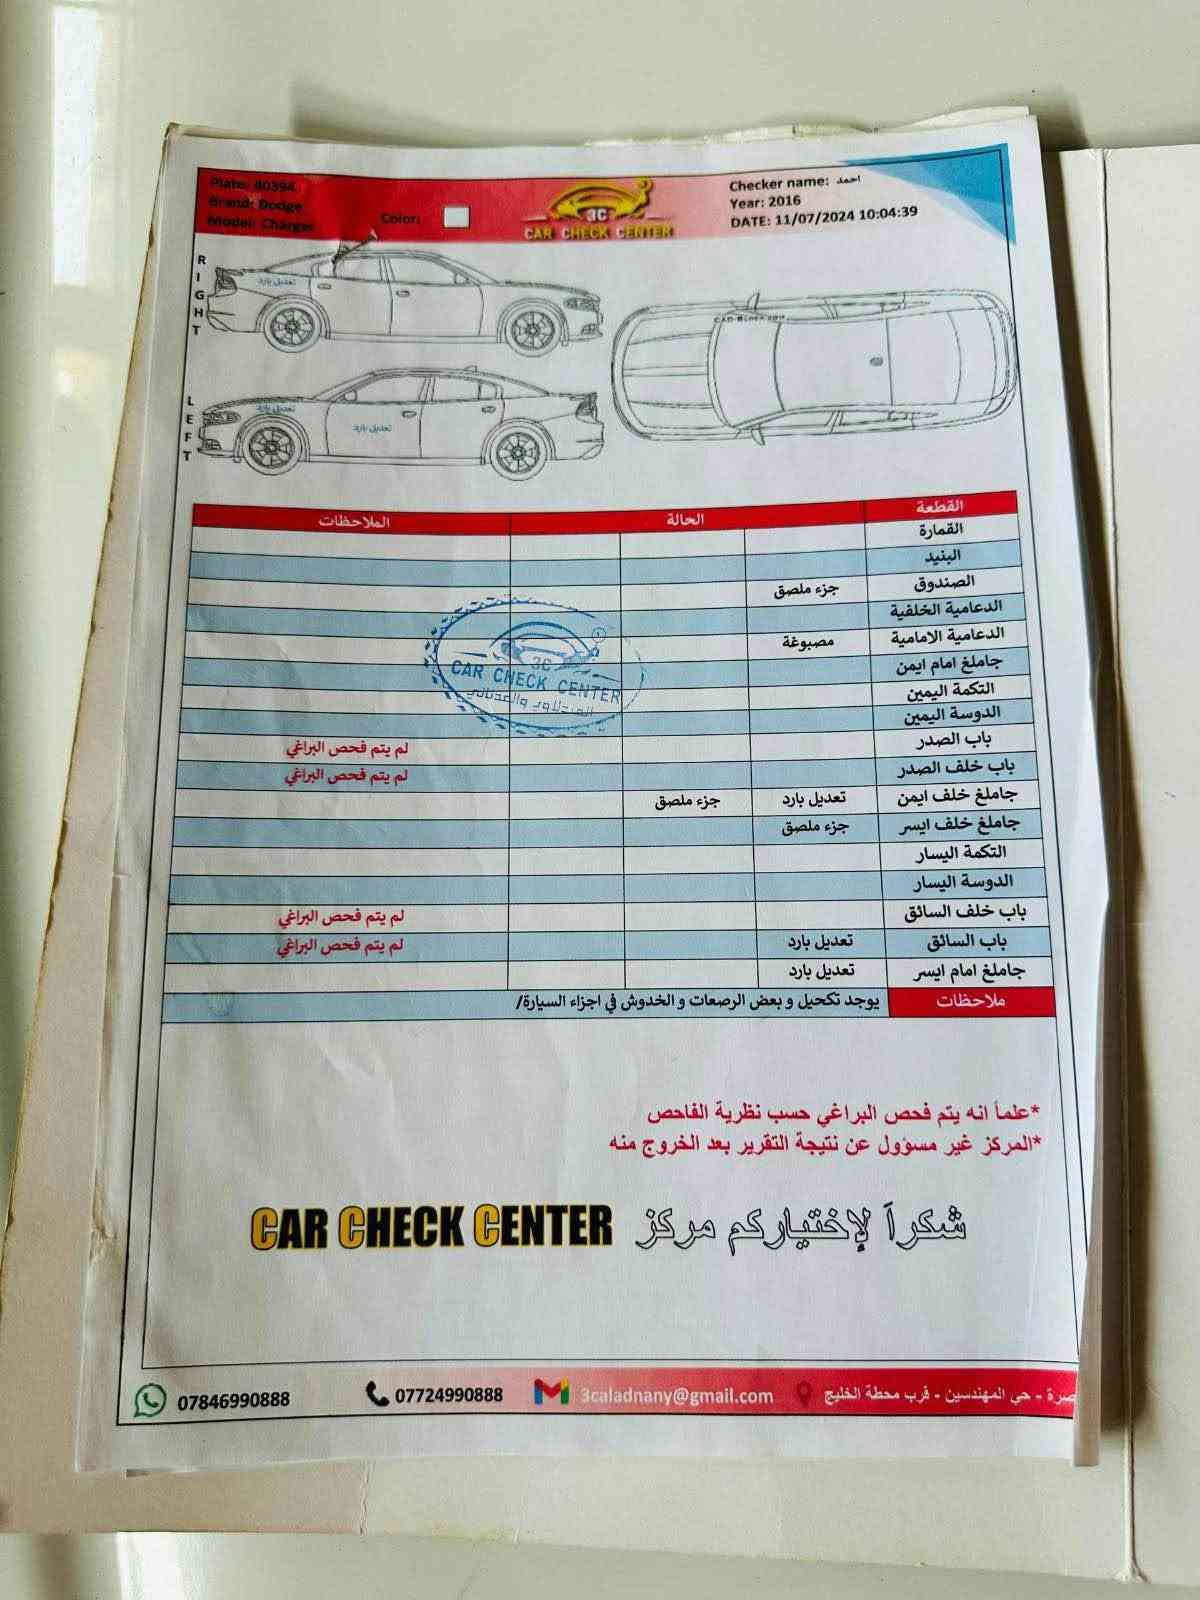 Plate: 40394
Brand: Dodge
Model: Charger
Color:
3C
CAR CHECK CENTER
Checker name: احمد
Year: 2016
DATE: 11/07/2024 10:04:39
RIGHT
تعديل بارد
LEFT
تعديل بارد
تعديل بارد
القطعة الحالة الملاحظات
القمارة
البنيد
الصندوق جزء ملصق
الدعامية الخلفية
الدعامية الامامية مصبوغة
جاملغ امام ايمن
التكمة اليمين
الدوسة اليمين
باب الصدر لم يتم فحص البراغي
باب خلف الصدر لم يتم فحص البراغي
جاملغ خلف ايمن تعديل بارد جزء ملصق
جاملغ خلف ايسر جزء ملصق
التكمة اليسار
الدوسة اليسار
باب خلف السائق لم يتم فحص البراغي
باب السائق تعديل بارد لم يتم فحص البراغي
جاملغ امام ايسر تعديل بارد
ملاحظات يوجد تكحيل و بعض الرصعات و الخدوش في اجزاء السيارة/
3C
CAR CHECK CENTER
*علماً انه يتم فحص البراغي حسب نظرية الفاحص
*المركز غير مسؤول عن نتيجة التقرير بعد الخروج منه
شكراً لإختياركم مركز CAR CHECK CENTER
07846990888 07724990888 3caladnany@gmail.com صرة - حي المهندسين - قرب محطة الخليج